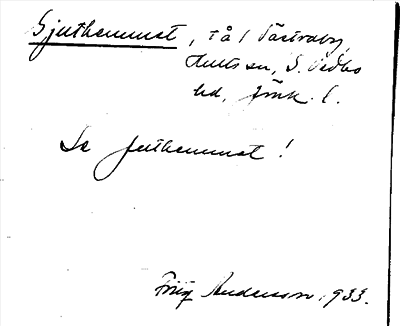 Gjuthemmet, rå i Västraby,
Hults sn, S. Vedbo
hd, Jönk. l.
Se Juthemmet!
Frig Andersson 1933.